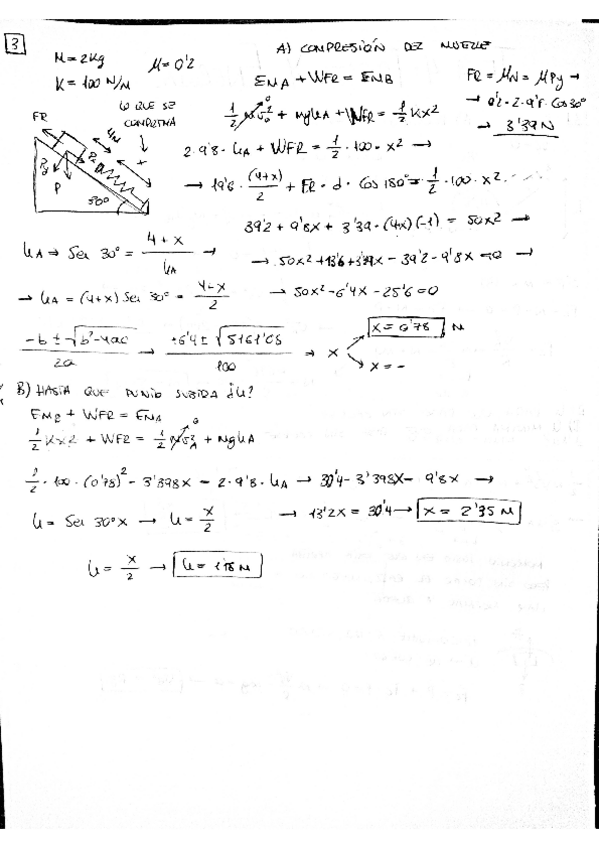 3
M = 2Kg
K = 100 N/m
μ = 0'2
A) COMPRESIÓN DEL MUELLE
EmA + WFR = EmB
FR = μN = μPy →
→ 0'2 · 2 · 9'8 · Cos 30°
→ 3'39N
1/2 mv² + mghA + WFR = 1/2 Kx²
0
FR
LO QUE SE
COMPRIMA
4m
x
Py
Px
P
30°
2 · 9'8 · hA + WFR = 1/2 · 100 · x² →
→ 19'6 · (4+x)/2 + FR · d · Cos 180° = 1/2 · 100 · x²
39'2 + 9'8x + 3'39 · (4+x)(-1) = 50x² →
hA → Sen 30° = 4+x/hA →
→ 50x² + 13'6 + 3'39x - 39'2 - 9'8x = 0 →
→ hA = (4+x) Sen 30° = 4+x/2
→ 50x² - 6'4x - 25'6 = 0
-b ± √b²-4ac/2a → +6'4 ± √5161'05/100 → x
x = 0'78 m
x = -
B) HASTA QUE PUNTO SUBIRA ¿h?
EmB + WFR = EmA
1/2 Kx² + WFR = 1/2 mv²A + mghA
0
1/2 · 100 · (0'78)² - 3'398x - 2 · 9'8 · hA → 30'4 - 3'398x - 9'8x →
h = Sen 30° x → h = x/2
→ 13'2x = 30'4 → x = 2'35 m
h = x/2 → h = 1'18 m